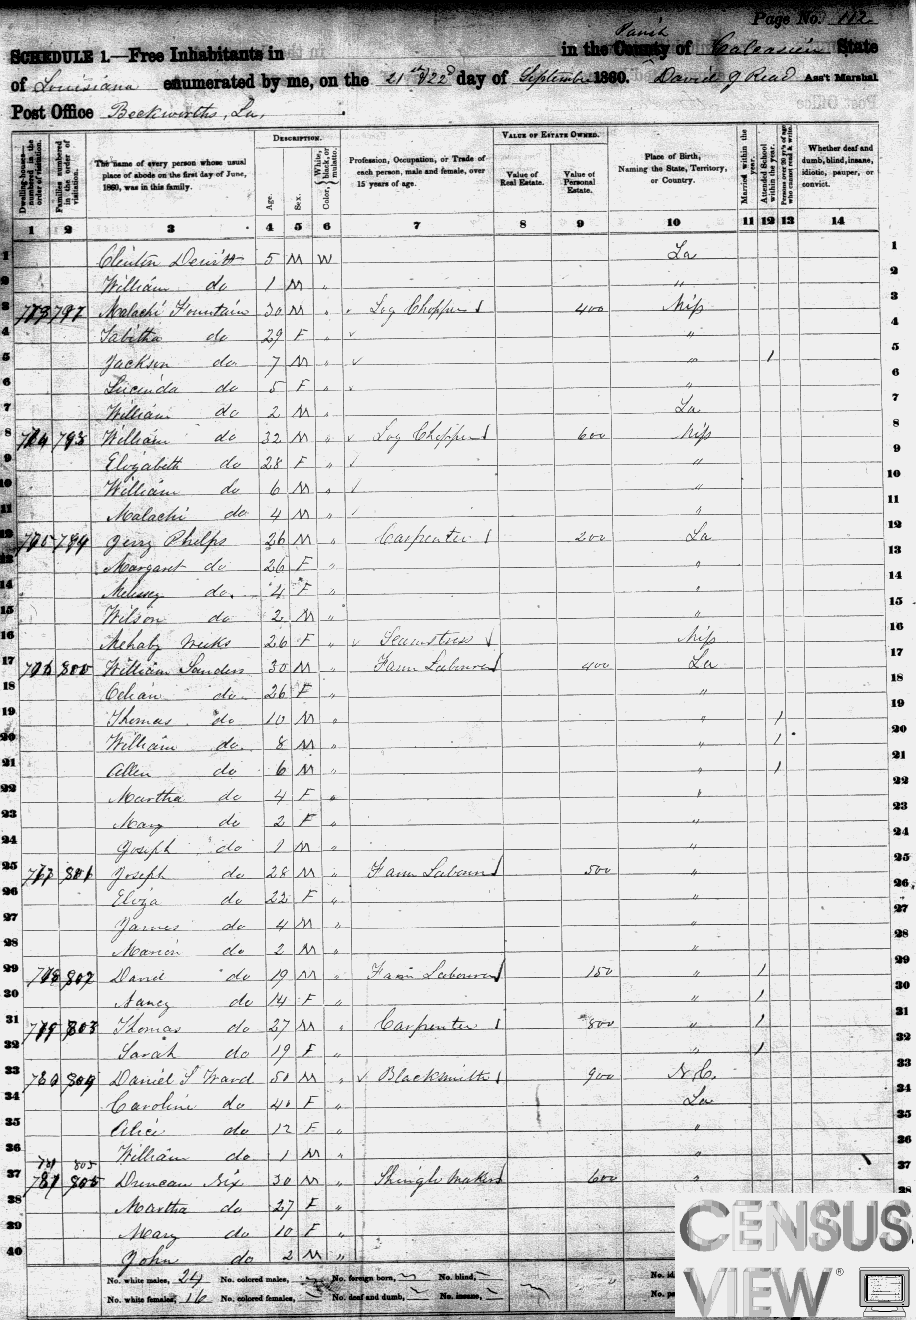 Page No. 112
SCHEDULE 1.—Free Inhabitants in in the County of Parish Calcasieu State
of Louisiana enumerated by me, on the 21st & 22d day of September 1860. David J Read Ass't Marshal
Post Office Beckworths, La,
Dwelling-house—numbered in the order of visitation.
Families numbered in the order of visitation.
The name of every person whose usual place of abode on the first day of June, 1860, was in this family.
DESCRIPTION.
Age.
Sex.
Color, White, black, or mulatto.
Profession, Occupation, or Trade of each person, male and female, over 15 years of age.
VALUE OF ESTATE OWNED.
Value of Real Estate.
Value of Personal Estate.
Place of Birth, Naming the State, Territory, or Country.
Married within the year.
Attended School within the year.
Persons over 20 y'rs of age who cannot read & write.
Whether deaf and dumb, blind, insane, idiotic, pauper, or convict.
1 2 3 4 5 6 7 8 9 10 11 12 13 14
1 Clinton 5 M W La 1
2 William do 1 M " " 2
3 797 Malachi Fountain 30 M " Log Chopper 400 Mip 3
4 Tabitha do 29 F " " 4
5 Jackson do 7 M " " 1 5
6 Lucinda do 5 F " " 6
7 William do 2 M " La 7
8 798 William do 32 M " Log Chopper 600 Mip 8
9 Elizabeth do 28 F " " 9
10 William do 6 M " " 10
11 Malachi do 4 M " " 11
12 799 Jerry Phelps 26 M " Carpenter 200 La 12
13 Margaret do 26 F " " 13
14 do 4 F " " 14
15 Wilson do 2 M " " 15
16 Mehaby Weeks 26 F " Seamstress Mip 16
17 800 William Sanders 30 M " Farm Labourer 400 La 17
18 do 26 F " " 18
19 Thomas do 10 M " " 1 19
20 William do 8 M " " 1 20
21 Allen do 6 M " " 1 21
22 Martha do 4 F " " 22
23 Mary do 2 F " " 23
24 Joseph do 1 M " " 24
25 801 Joseph do 28 M " Farm Labourer 500 " 25
26 Eliza do 22 F " " 26
27 James do 4 M " " 27
28 Marion do 2 M " " 28
29 802 David do 19 M " Farm Labourer 150 " 1 29
30 Nancy do 14 F " " 1 30
31 803 Thomas do 27 M " Carpenter 800 " 1 31
32 Sarah do 19 F " " 1 32
33 780 804 Daniel S Ward 50 M " Blacksmith 900 N.C. 33
34 Caroline do 40 F " La 34
35 Alice do 12 F " " 35
36 William do 1 M " " 36
781 805
37 781 805 Duncan Nix 30 M " Shingle Maker 600 " 37
38 Martha do 27 F " 38
39 Mary do 10 F "
40 John do 2 M "
No. white males, 24 No. colored males, No. foreign born, No. blind,
No. white females, 16 No. colored females, No. deaf and dumb, No. insane,
CENSUS
VIEW®